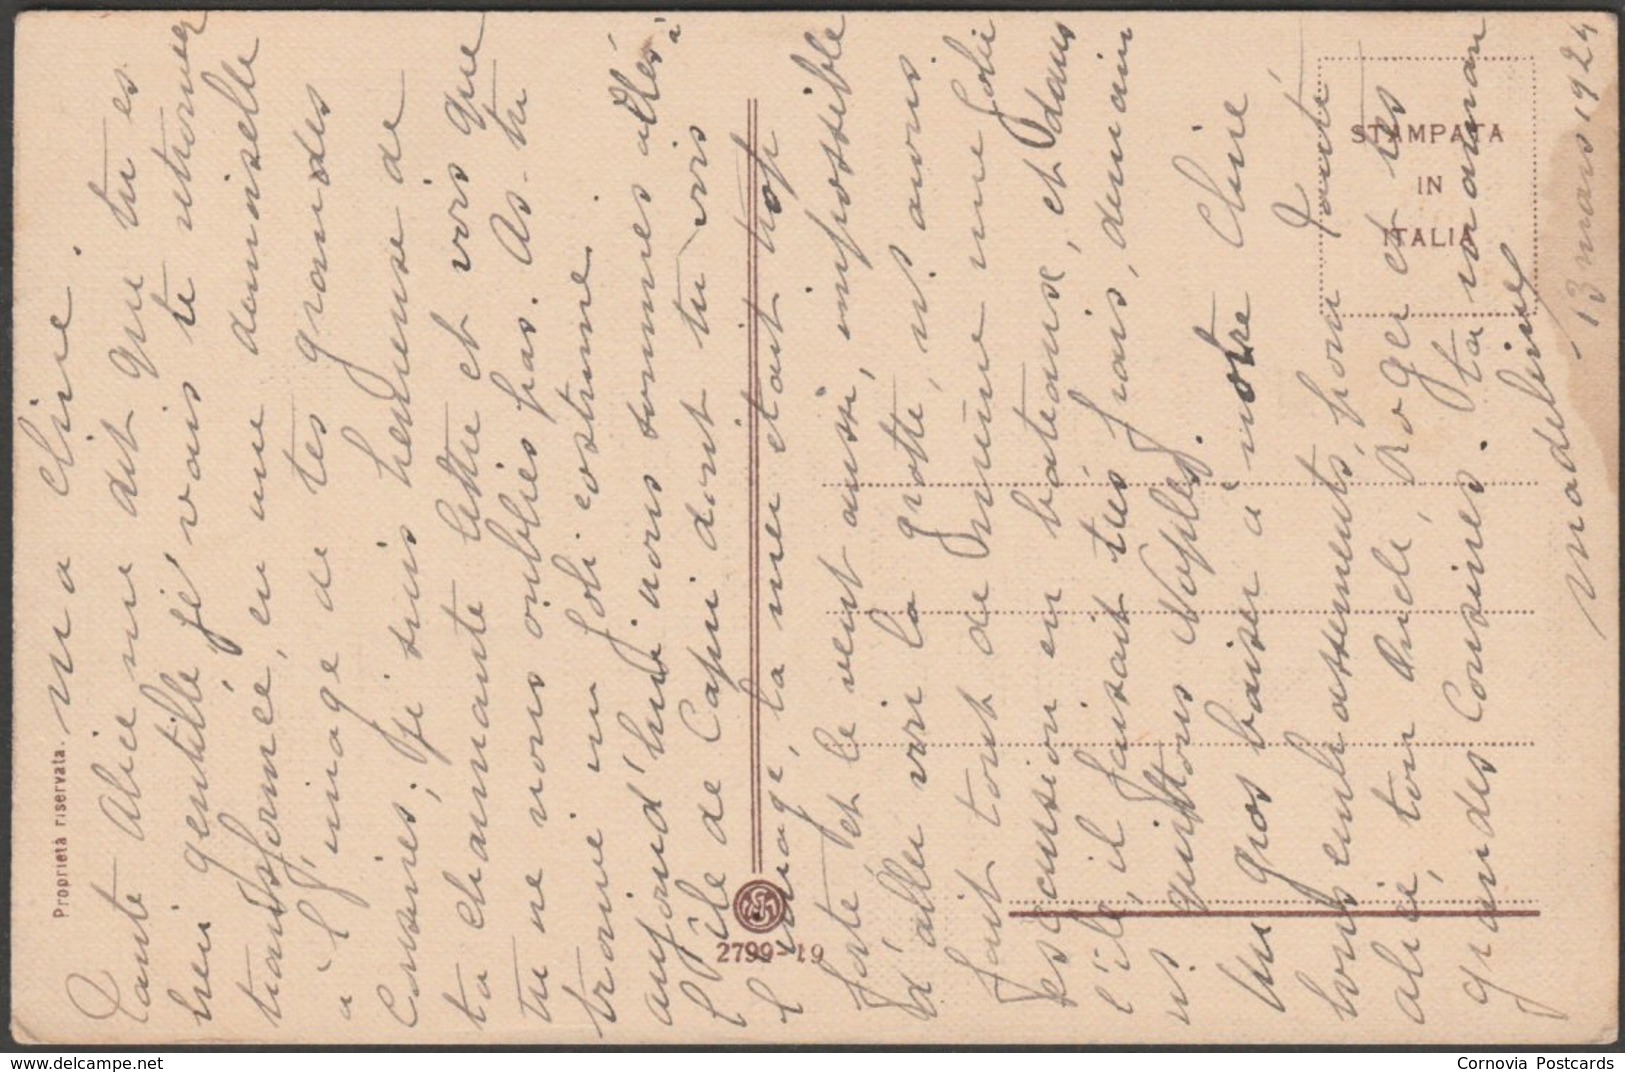 Ma Line.
Tante Alice me dit que tu es
bien gentille, je vais te retrouver
transformée, en une demoiselle
à l'image de tes grandes
Cousines; je suis heureuse de
ta charmante lettre et vois que
tu ne nous oublies pas. As-tu
trouvé un joli costume.
aujourd'hui nous sommes allés à
l'île de Capri dont tu vis
l'image, la mer étant trop
forte et le vent aussi, impossible
d'aller voir la grotte, ns. avons
fait tout de même une jolie
excursion en bateaux, et dans
l'île, il faisait très frais, demain
ns. quittons Naples.
Un gros baiser à notre Line
bons embrassements pour Tante
Alice, ton Oncle, Roger et tes
grandes Cousines. Ta maman
Madeleine
13 mars 1924
Proprietà riservata.
2799-19
STAMPATA
IN
ITALIA
Cornovia Postcards
www.delcampe.net